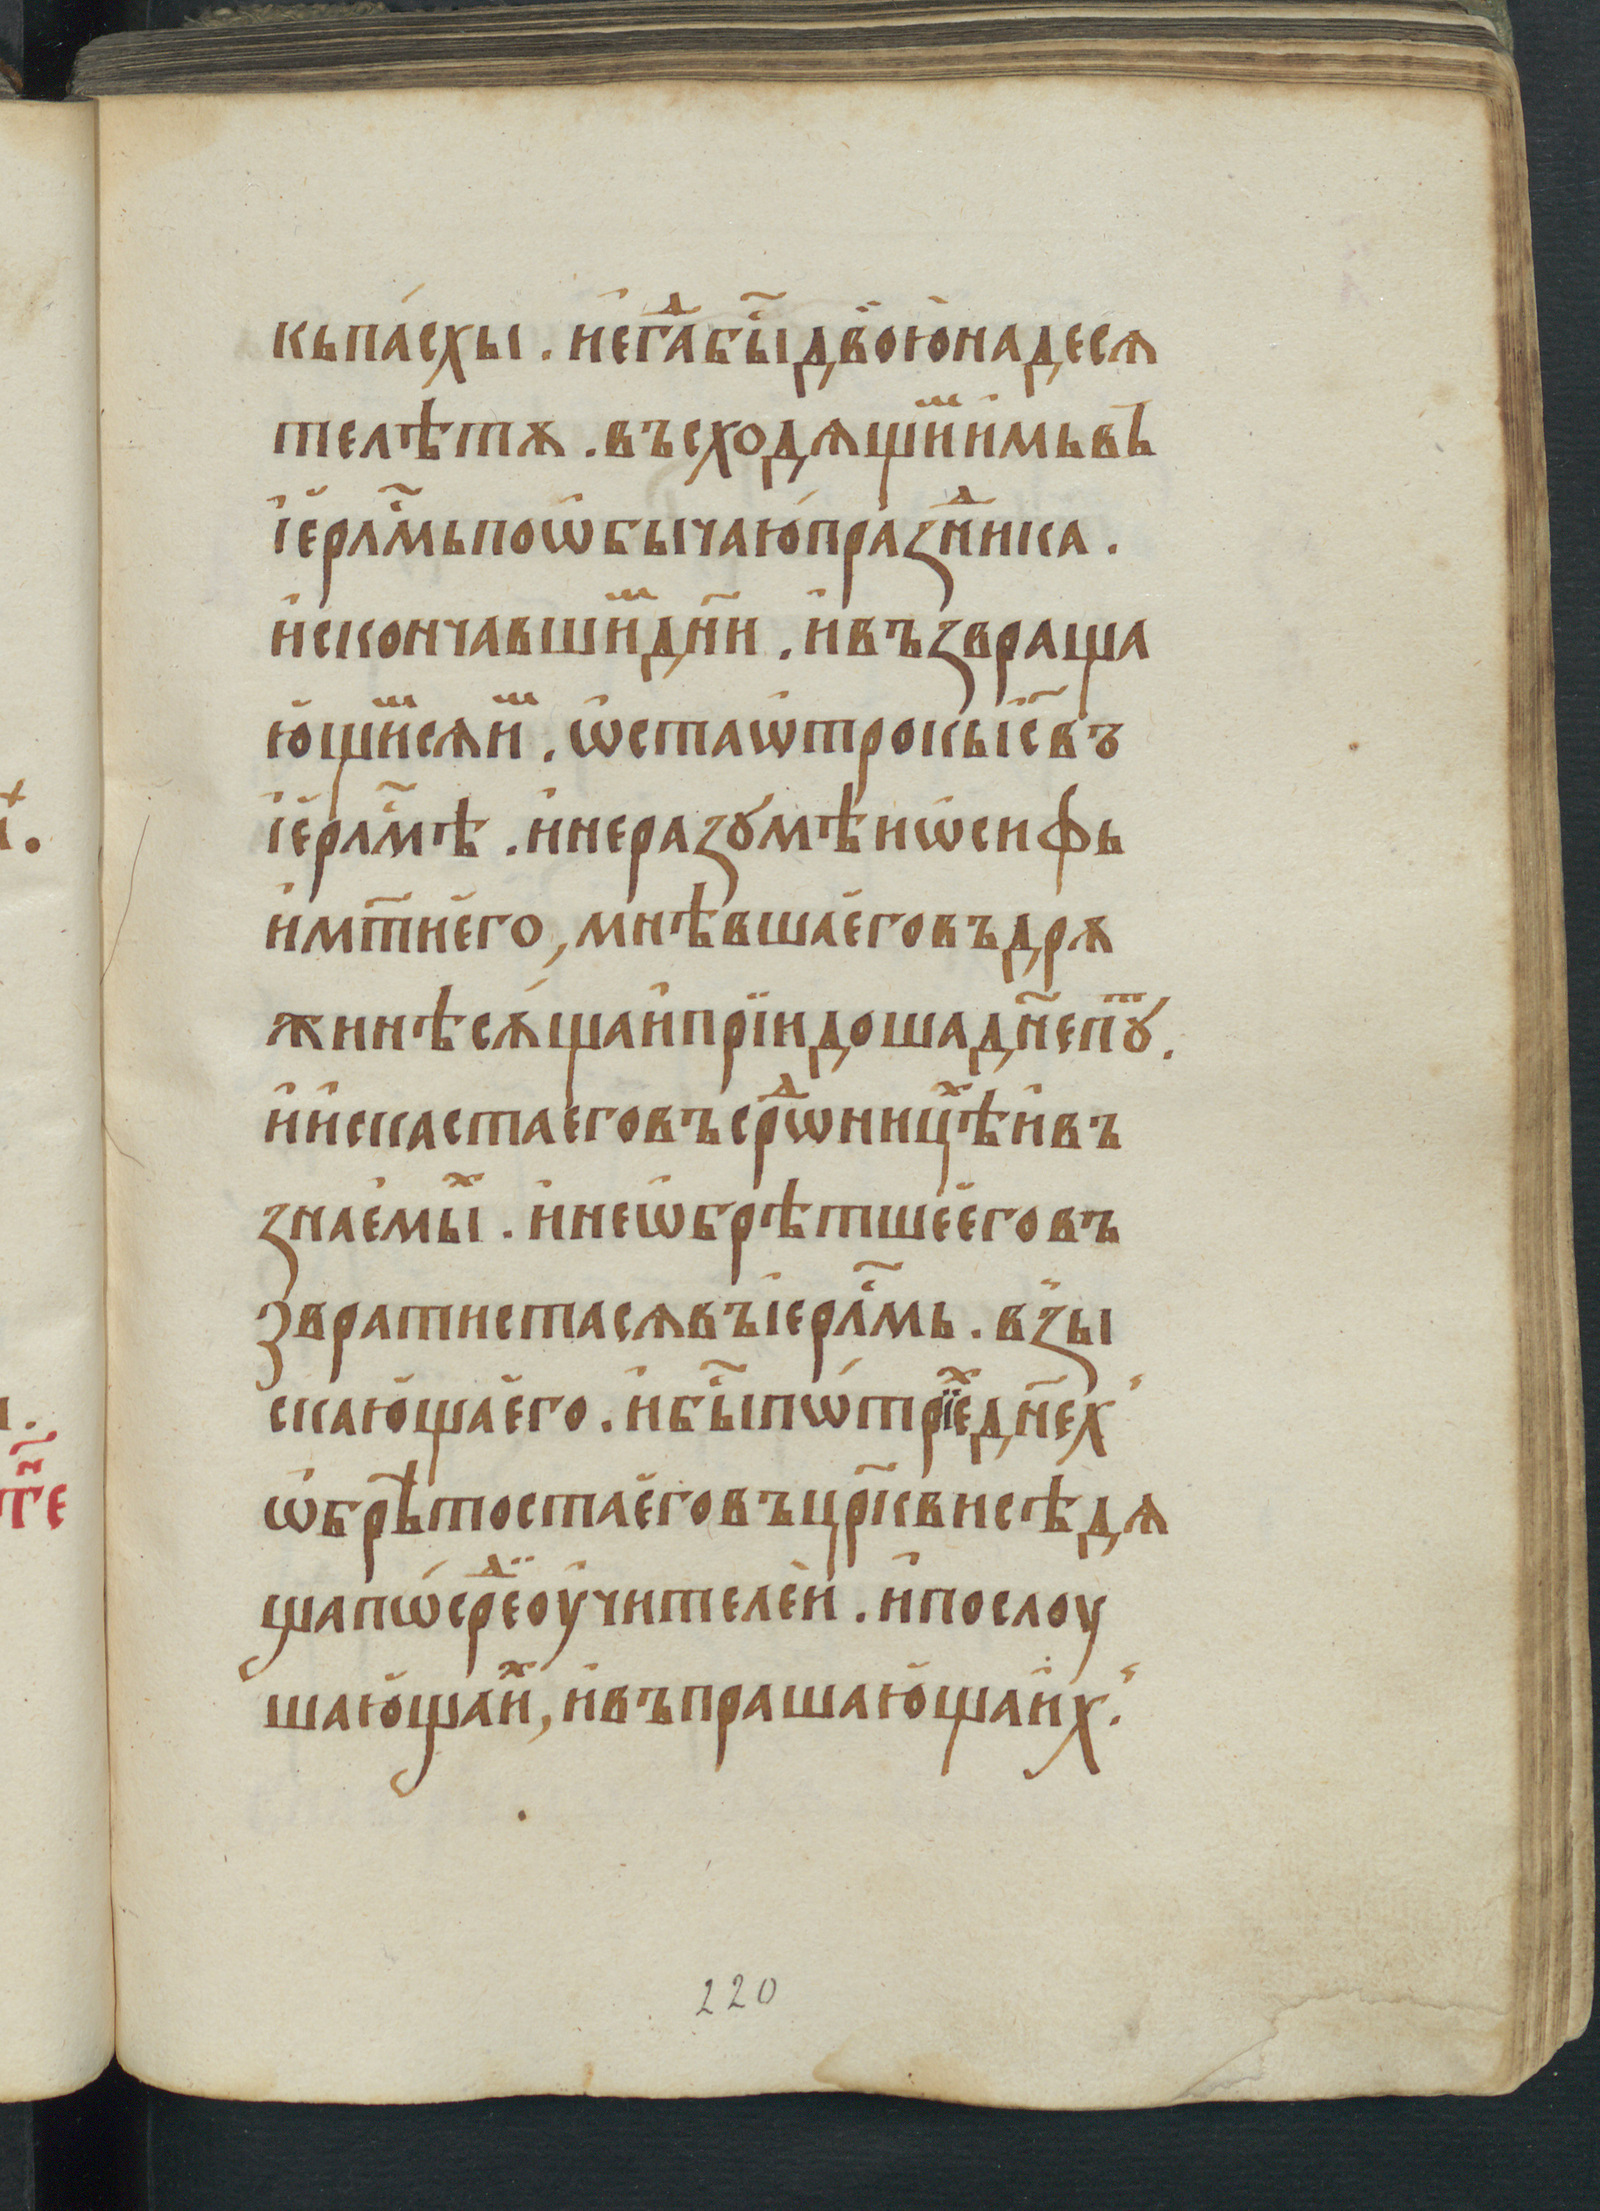 кьпа́схы . и҆егⷣа̀бы҃двою҆надеся
телѣтѫ . въсходѧщиⷨи҆мьвъ
і҆е҆рⷭ҇л҃мьпоѡ҆бычаю҆пра́зⷣника .
и҆скончавшиⷨдн҃и . и҆възвраща
ю҆щиⷨсѧи҆ⷨ . ѡ҆стаѡ҆трокьі҆с҃въ
і҆е҆рⷭ҇л҃мѣ . и҆неразꙋмѣиѡ҆сифь
и҆мт҃ие҆го , мнѣвшае҆говъдрѫ
жинѣсѫ́щаи҆прїидошадн҃епⷮꙋ .
и҆и҆скастаеговъсрⷣѡницⷯѣи҆въ
знае҆мыⷯ . и҆неѡ҆брѣтшее҆говъ
звратистасѧвъі҆ерⷭ҇л҃мь . вз̾ы
скаю҆щае҆го . и҆бы҃пѡ́трїеⷯдн҃ех̾
ѡ҆брѣтостае҆говъцр҃квисѣдѧ
щапѡ́срⷣеоу҆чителе́и . и҆послоу
шаю҆щаи҆ⷯ , и҆въпрашаю҆щаи҆х̾.
220